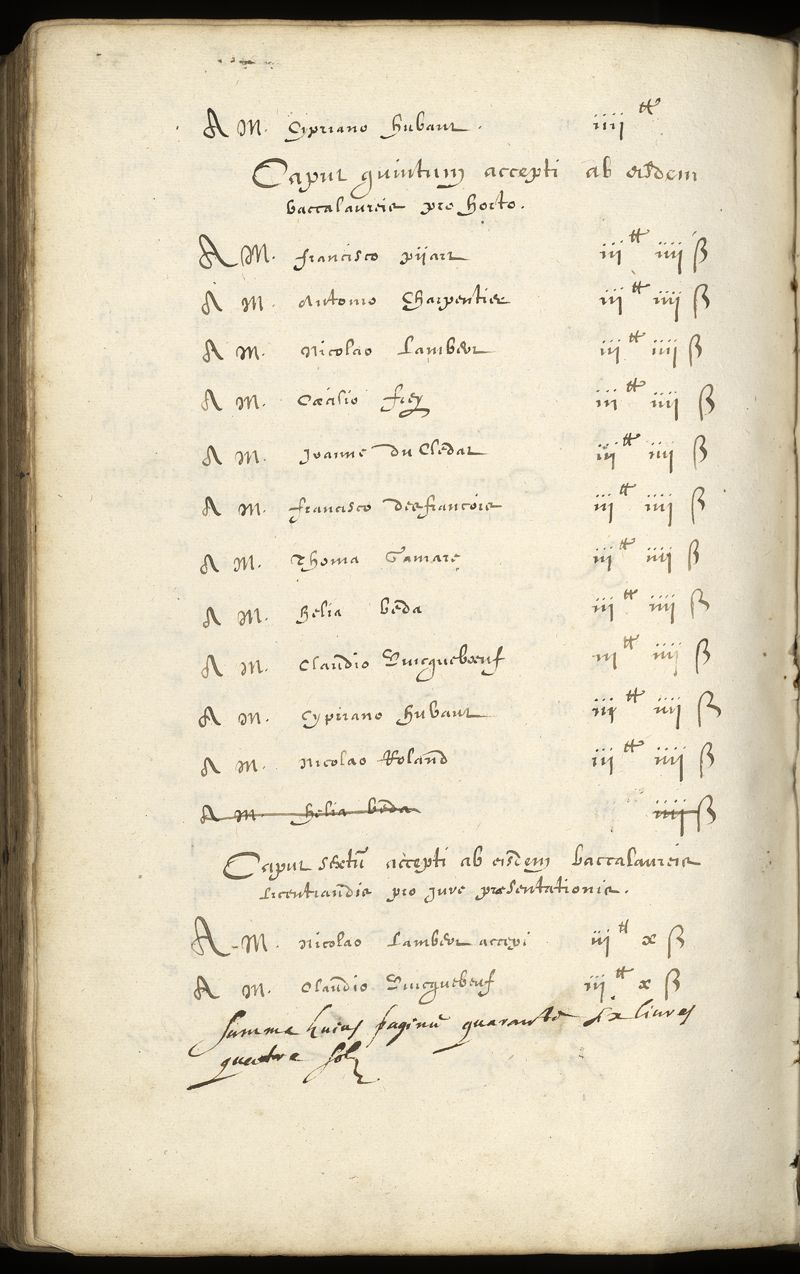 A M. Cypriano Hubaut. iiij tt
Caput quintum accepti ab eisdem
baccalaureis pro horto.
A M. Francisco pijart iij tt iiij ß
A M. Antonio Charpentier iij tt iiij ß
A M. Nicolao Lambert iij tt iiij ß
A M. Cæcilio frey iij tt iiij ß
A M. Joanne du Cledat iij tt iiij ß
A M. Francisco desfrancois iij tt iiij ß
A M. Thoma Gamare iij tt iiij ß
A M. Helia béda iij tt iiij ß
A M. Claudio Quicquebœuf iij tt iiij ß
A M. Cypriano Hubaut iij tt iiij ß
A M. Nicolao Roland iij tt iiij ß
A M. Helia béda iiij ß
Caput sextū accepti ab eisdem baccalaureis
licentiandis pro jure præsentationis.
A M. Nicolao Lambert accepi iij tt x ß
A M. Claudio Quicquebeuf iij tt x ß
Summa huius paginæ quarante six liures
quattre solz